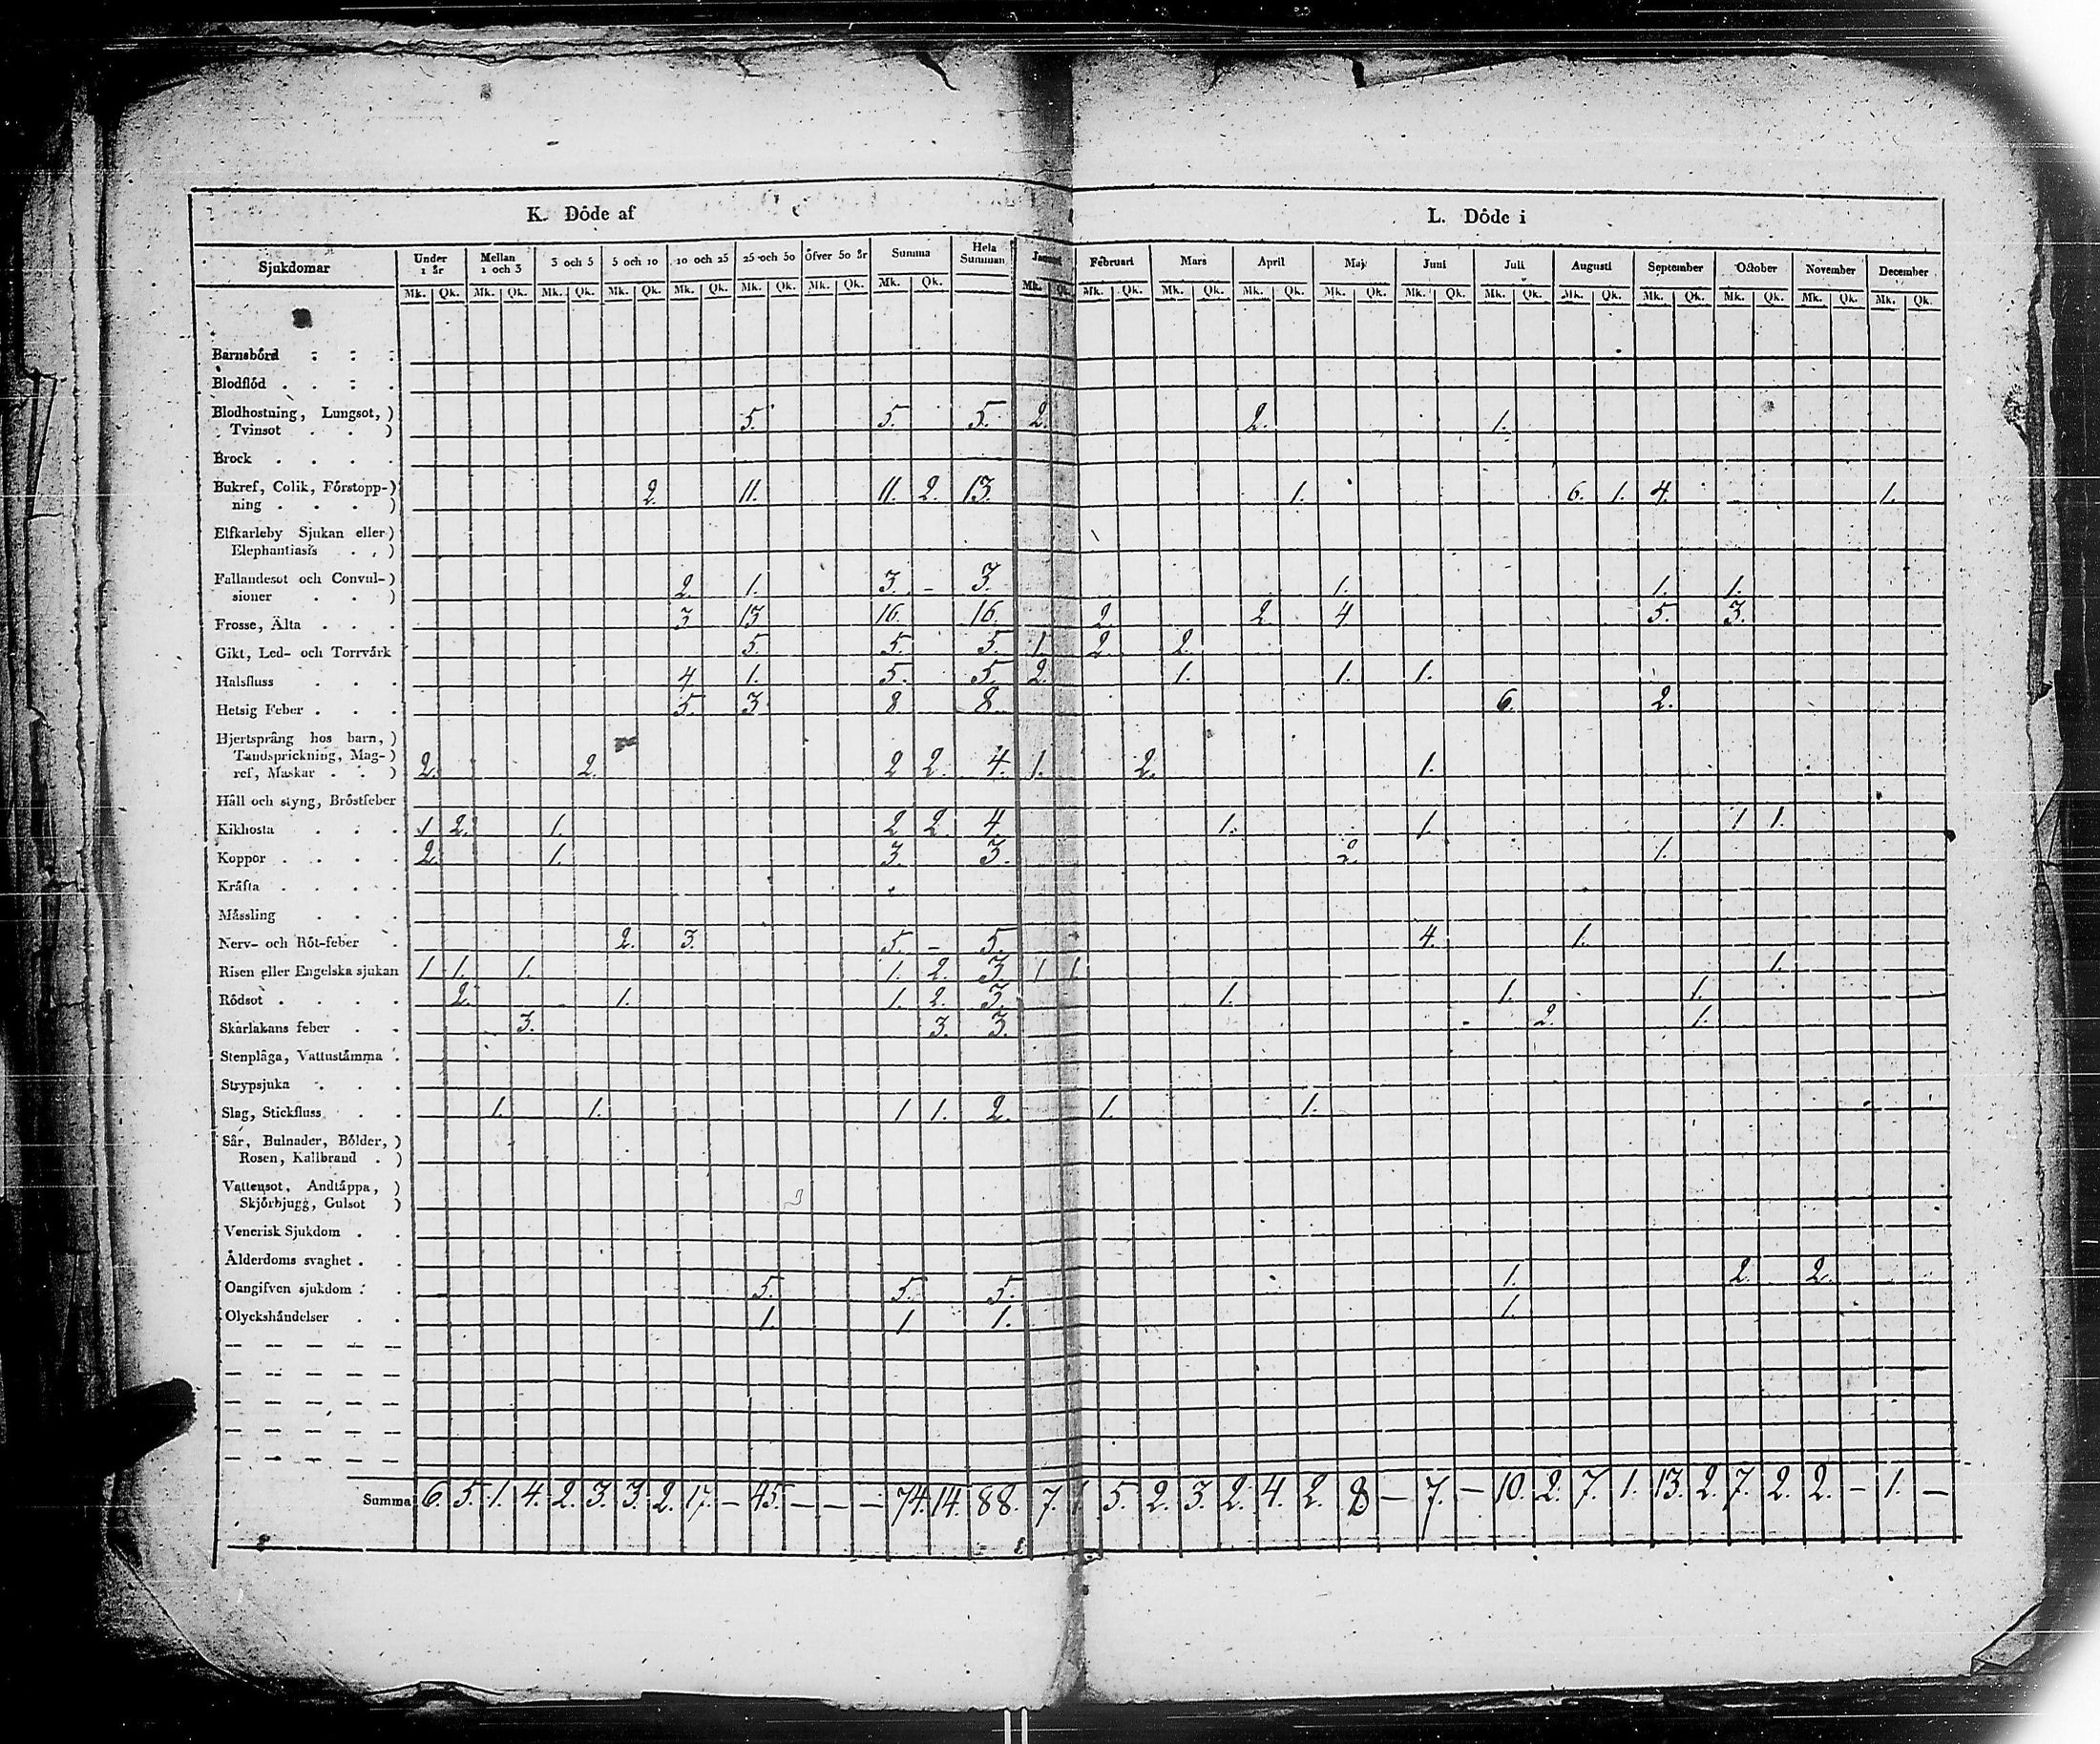 K. Döde af L. Döde i
Sjukdomar Under 1 år Mellan 1 och 3 3 och 5 5 och 10 10 och 25 25 och 50 Öfver 50 år Summa Hela Summan Januari Februari Mars April Maj Juni Juli Augusti September October November December
Mk. Qk. Mk. Qk. Mk. Qk. Mk. Qk. Mk. Qk. Mk. Qk. Mk. Qk. Mk. Qk. Mk. Qk. Mk. Qk. Mk. Qk. Mk. Qk. Mk. Qk. Mk. Qk. Mk. Qk. Mk. Qk. Mk. Qk. Mk. Qk. Mk. Qk. Mk. Qk.
Barnsbörd
Blodflöd
Blodhostning, Lungsot,)
Tvinsot ) 5. 5. 5. 2. 2. 1.
Brock
Bukref, Colik, Förstopp-)
ning ) 2. 11. 11. 2. 13. 1. 6. 1. 4. 1.
Elfkarleby Sjukan eller)
Elephantiasis )
Fallandesot och Convul-)
sioner ) 2. 1. 3. - 3. 1. 1. 1.
Frosse, Älta 3 13 16. 16. 2. 2. 4 5. 3.
Gikt, Led- och Torrvärk 5. 5. 5. 1. 2. 2.
Halsfluss 4 1. 5. 5. 2. 1. 1. 1.
Hetsig Feber 5. 3 8. 8. 6. 2.
Hjertsprång hos barn, )
Tandsprickning, Mag-)
ref, Maskar ) 2. 2. 2 2. 4. 1. 2. 1.
Håll och styng, Bröstfeber
Kikhosta 1 2. 1. 2 2. 4. 1. 1. 1 1.
Koppor 2. 1. 3. 3. 2. 1.
Kräfta
Mässling
Nerv- och Röt-feber 2. 3. 5. - 5. 4. 1.
Risen eller Engelska sjukan 1 1. 1. 1. 2. 3 1 1. 1.
Rödsot 2. 1. 1. 2. 3. 1. 1. 1.
Skarlakans feber 3. 3. 3. 2. 1.
Stenplåga, Vattustämma
Strypsjuka
Slag, Stickfluss 1. 1. 1 1. 2. 1. 1.
Sår, Bulnader, Bölder, )
Rosen, Kallbrand )
Vattensot, Andtäppa, )
Skjörbjugg, Gulsot )
Venerisk Sjukdom
Ålderdoms svaghet
Oangifven sjukdom 5. 5. 5. 1. 2. 2.
Olyckshändelser 1. 1 1. 1.
Summa 6. 5. 1. 4. 2. 3. 3. 2. 17. - 45. - - - 74. 14. 88. 7. 1. 5. 2. 3. 2. 4. 2. 8 - 7. - 10. 2. 7. 1. 13. 2. 7. 2. 2. - 1. -